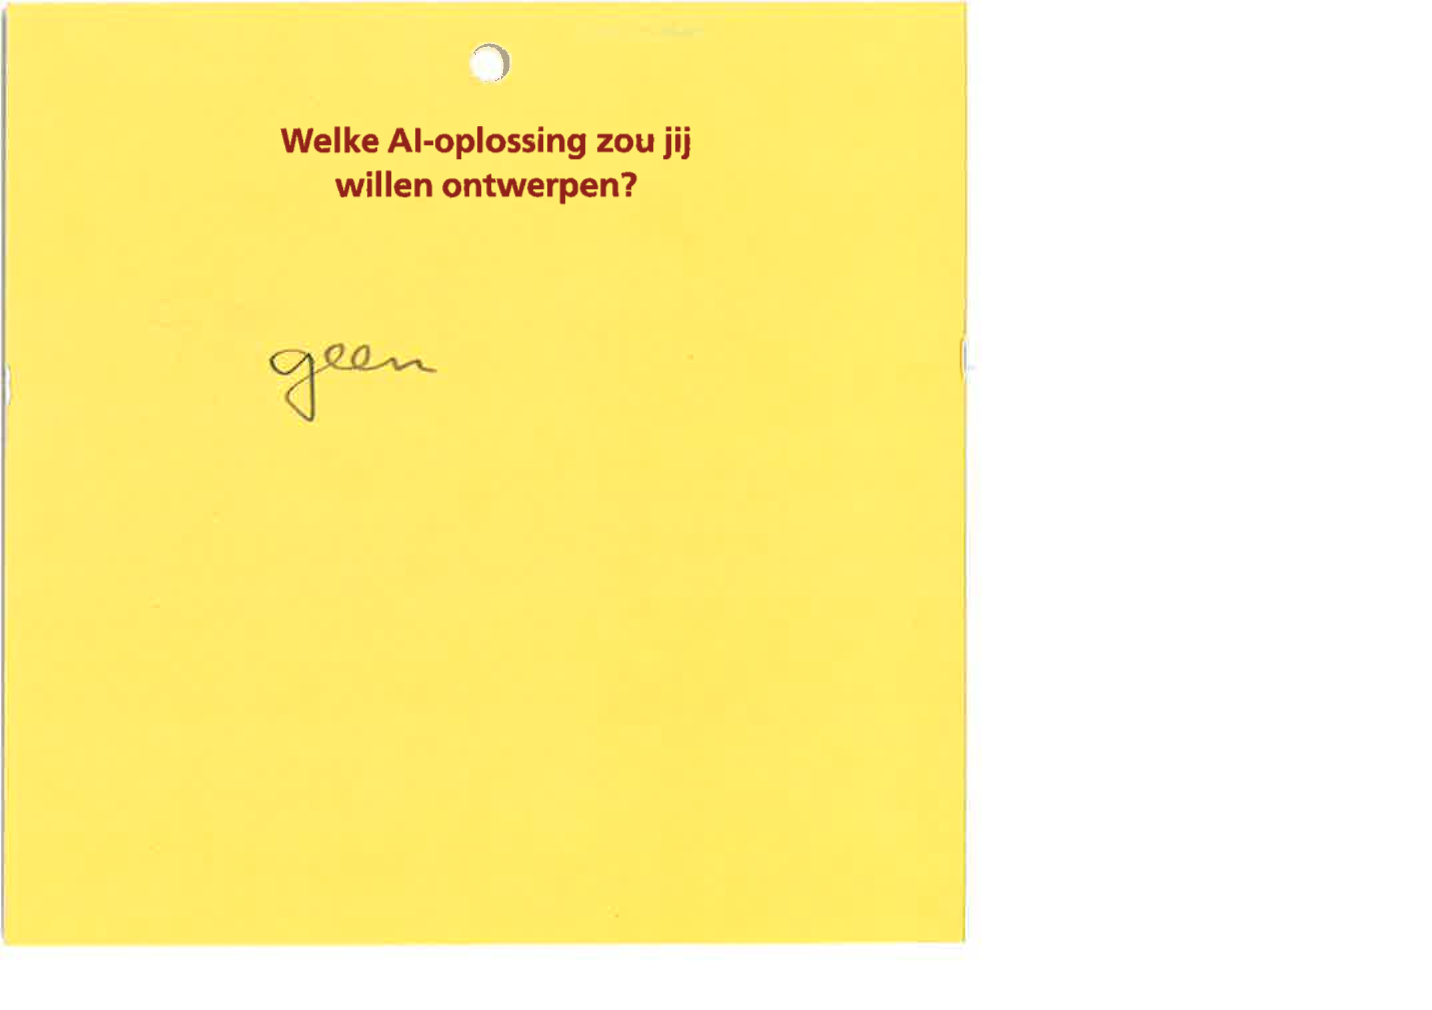 Welke AI-oplossing zou jij
willen ontwerpen?
geen